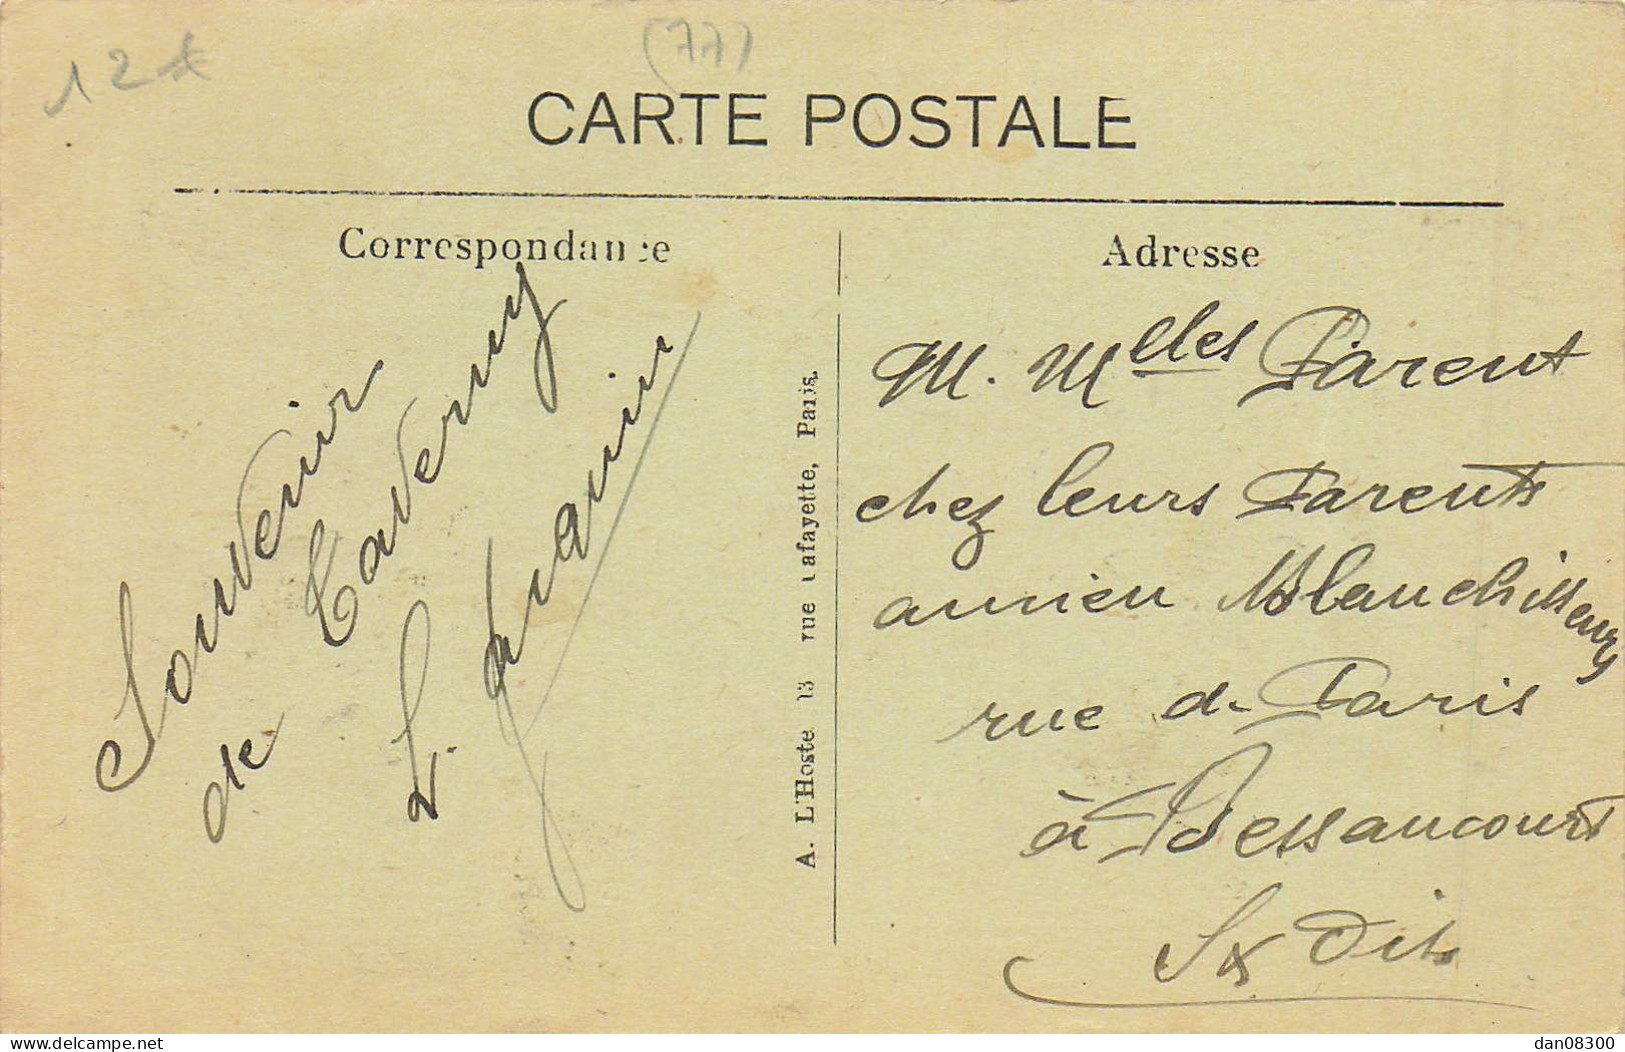 12
(77)
CARTE POSTALE
Correspondance
Adresse
Souvenir
de Taverny
L.
A. L'Hoste 13 rue Lafayette, Paris.
M. Mlles Parent
chez leurs Parents
ancien Blanchisseurs
rue de Paris
à Bessancourt
S&
delcampe.net
dan08300